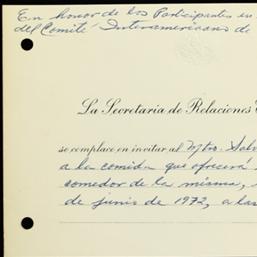 En honor de los Participantes en
del Comité Interamericano de
La Secretaria de Relaciones
se complace en invitar al Mtro. Salv
a la comida que ofrecerá
comedor de la misma,
de junio de 1972, a las